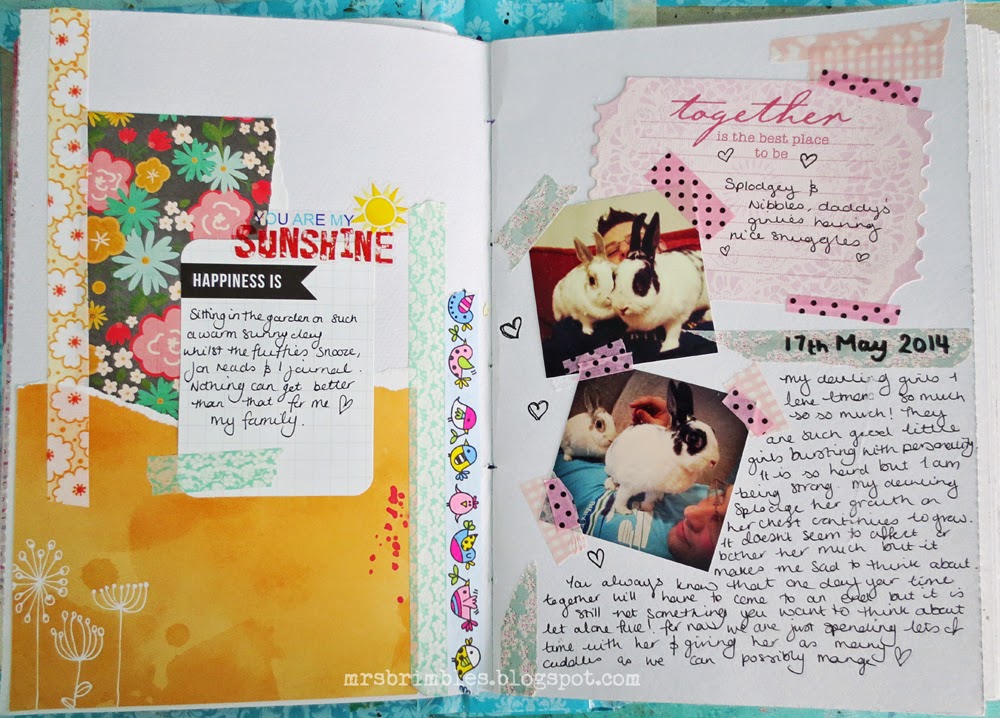 YOU ARE MY
SUNSHINE
HAPPINESS IS
Sitting in the garden on such
a warm sunny day
whilst the fluffies snooze,
Jon reads & I journal.
Nothing can get better
than that for me ♡
my family.
together
is the best place
to be
Splodgey &
Nibbles, daddy's
girlies having
nice snuggles
17th May 2014
My darling girls I
love so much
so so much! They
are such good little
girls bursting with personality
It is so hard but I am
being strong. My darling
Splodge her growth on
her chest continues to grow.
It doesn't seem to affect or
bother her much but it
makes me sad to think about.
You always know that one day your time
together will have to come to an end but it is
still not something you want to think about
let alone live! For now we are just spending lots of
time with her & giving her as many
cuddles as we can possibly mange ♡
mrsbrimbles.blogspot.com